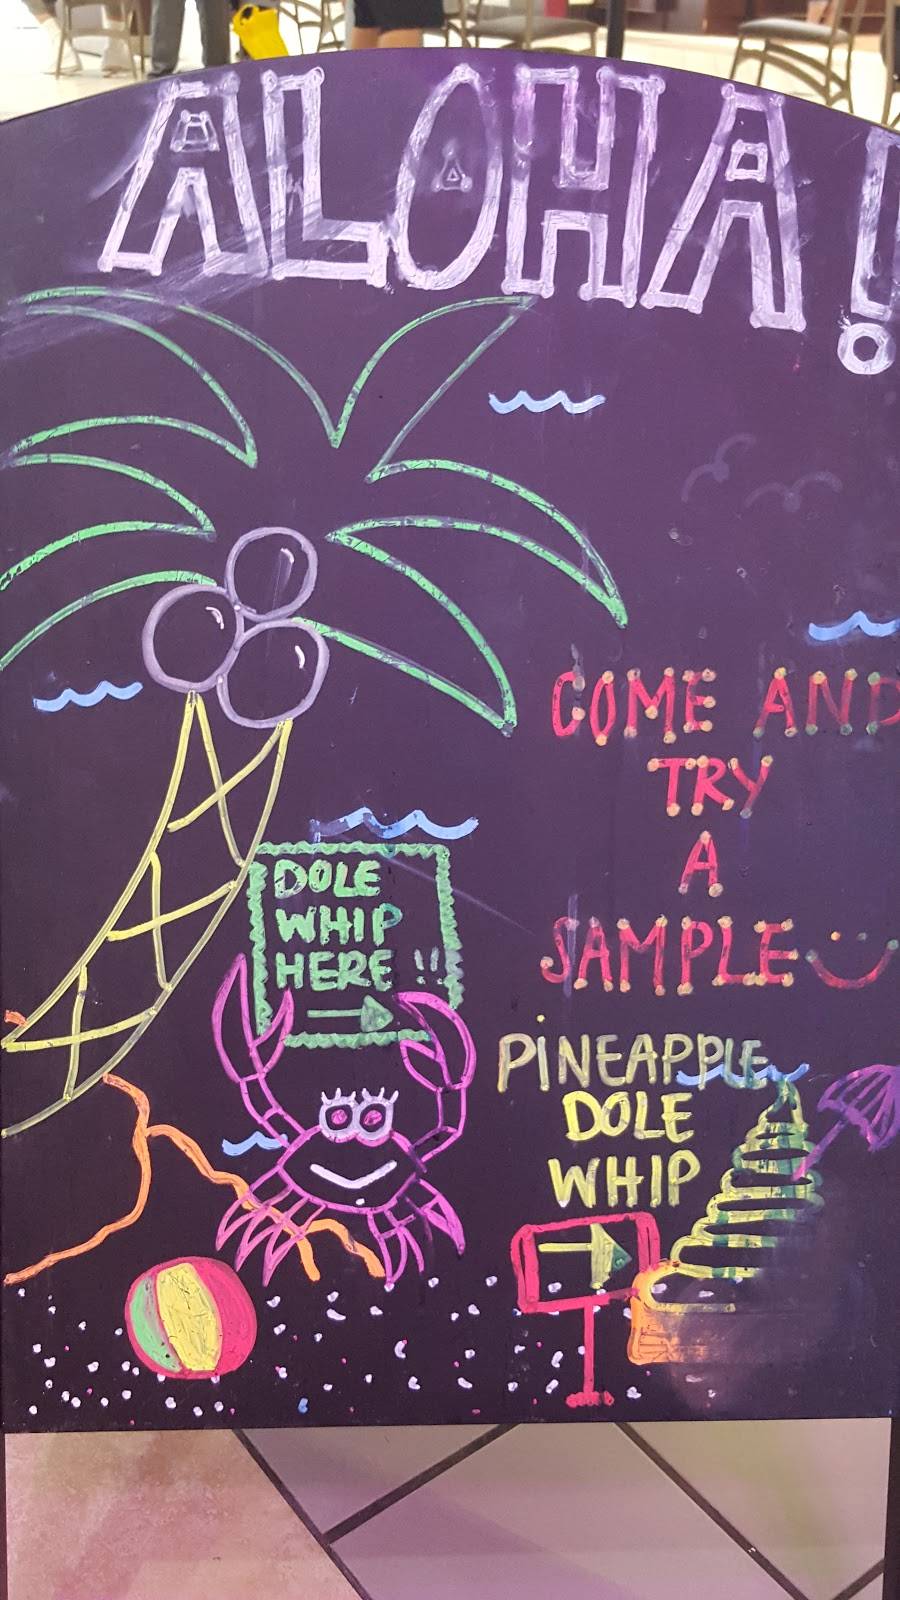 ALOHA!
DOLE
WHIP
HERE !!
COME AND
TRY
A
SAMPLE
PINEAPPLE
DOLE
WHIP